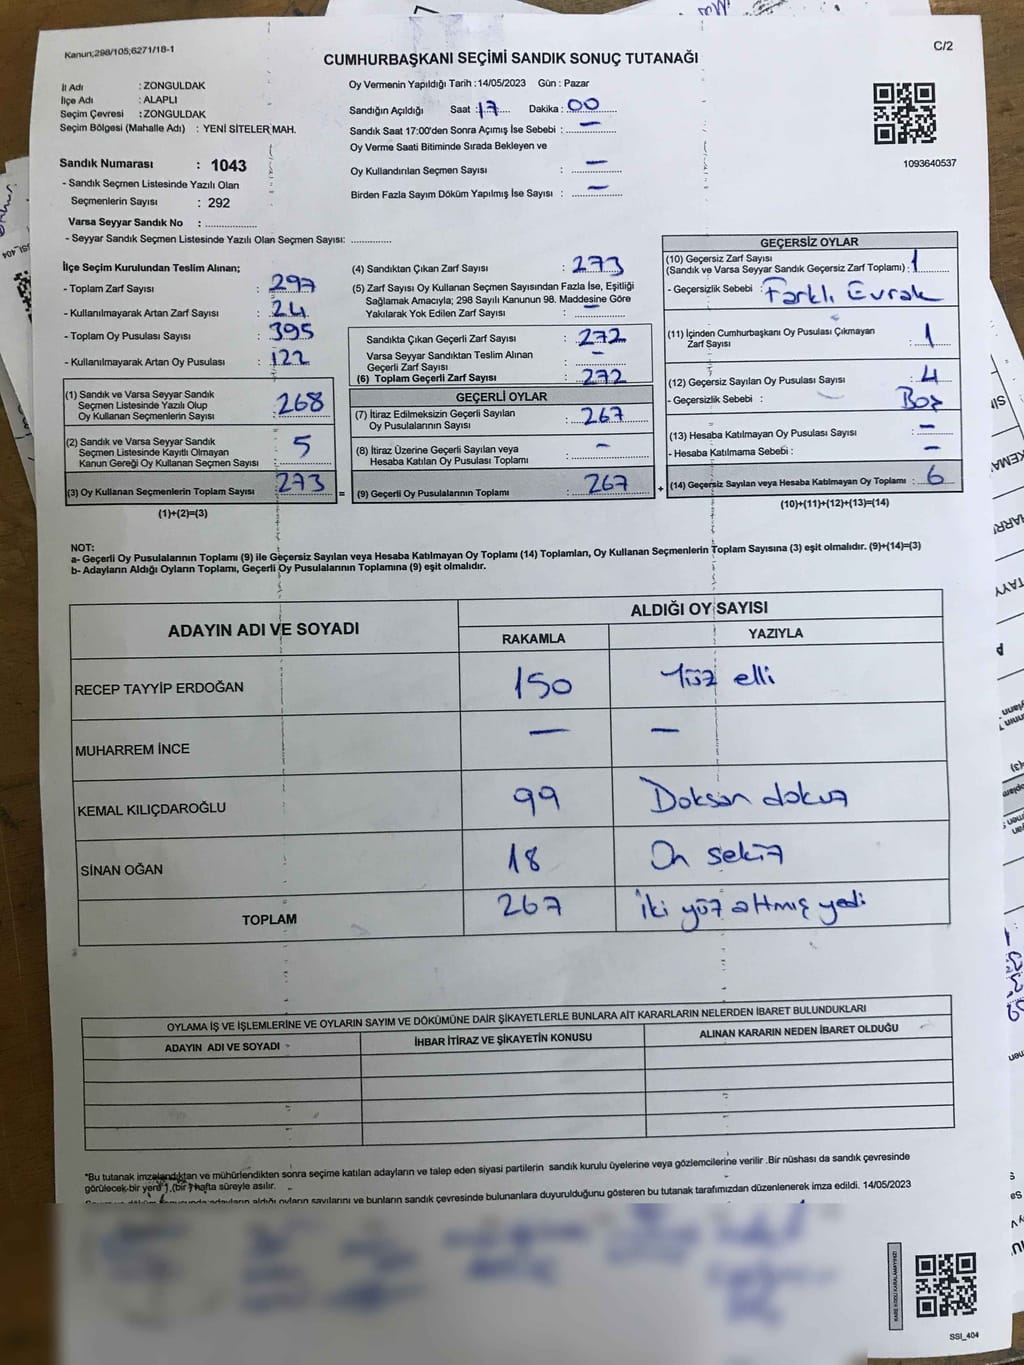 Kanun;298/105;6271/18-1
C/2
CUMHURBAŞKANI SEÇİMİ SANDIK SONUÇ TUTANAĞI
İl Adı : ZONGULDAK
İlçe Adı : ALAPLI
Seçim Çevresi : ZONGULDAK
Seçim Bölgesi (Mahalle Adı) : YENİ SİTELER MAH.
Sandık Numarası : 1043
- Sandık Seçmen Listesinde Yazılı Olan
Seçmenlerin Sayısı : 292
Varsa Seyyar Sandık No : ................
- Seyyar Sandık Seçmen Listesinde Yazılı Olan Seçmen Sayısı: ............
Oy Vermenin Yapıldığı Tarih :14/05/2023 Gün : Pazar
Sandığın Açıldığı Saat : 17 Dakika : 00
Sandık Saat 17:00'den Sonra Açımış İse Sebebi : —
Oy Verme Saati Bitiminde Sırada Bekleyen ve
Oy Kullandırılan Seçmen Sayısı : —
Birden Fazla Sayım Döküm Yapılmış İse Sayısı : —
1093640537
İlçe Seçim Kurulundan Teslim Alınan;
- Toplam Zarf Sayısı : 297
- Kullanılmayarak Artan Zarf Sayısı : 24
- Toplam Oy Pusulası Sayısı : 395
- Kullanılmayarak Artan Oy Pusulası : 122
(1) Sandık ve Varsa Seyyar Sandık
Seçmen Listesinde Yazılı Olup
Oy Kullanan Seçmenlerin Sayısı : 268
(2) Sandık ve Varsa Seyyar Sandık
Seçmen Listesinde Kayıtlı Olmayan
Kanun Gereği Oy Kullanan Seçmen Sayısı : 5
(3) Oy Kullanan Seçmenlerin Toplam Sayısı : 273 =
(1)+(2)=(3)
(4) Sandıktan Çıkan Zarf Sayısı : 273
(5) Zarf Sayısı Oy Kullanan Seçmen Sayısından Fazla İse, Eşitliği
Sağlamak Amacıyla; 298 Sayılı Kanunun 98. Maddesine Göre
Yakılarak Yok Edilen Zarf Sayısı : —
Sandıkta Çıkan Geçerli Zarf Sayısı : 272
Varsa Seyyar Sandıktan Teslim Alınan
Geçerli Zarf Sayısı : —
(6) Toplam Geçerli Zarf Sayısı : 272
GEÇERLİ OYLAR
(7) İtiraz Edilmeksizin Geçerli Sayılan
Oy Pusulalarının Sayısı : 267
(8) İtiraz Üzerine Geçerli Sayılan veya
Hesaba Katılan Oy Pusulası Toplamı : —
(9) Geçerli Oy Pusulalarının Toplamı : 267 +
GEÇERSİZ OYLAR
(10) Geçersiz Zarf Sayısı
(Sandık ve Varsa Seyyar Sandık Geçersiz Zarf Toplamı) : 1
- Geçersizlik Sebebi : Farklı Evrak
(11) İçinden Cumhurbaşkanı Oy Pusulası Çıkmayan
Zarf Sayısı : 1
(12) Geçersiz Sayılan Oy Pusulası Sayısı : 4
- Geçersizlik Sebebi : Boş
(13) Hesaba Katılmayan Oy Pusulası Sayısı : —
- Hesaba Katılmama Sebebi : —
(14) Geçersiz Sayılan veya Hesaba Katılmayan Oy Toplamı : 6
(10)+(11)+(12)+(13)=(14)
NOT:
a- Geçerli Oy Pusulalarının Toplamı (9) ile Geçersiz Sayılan veya Hesaba Katılmayan Oy Toplamı (14) Toplamları, Oy Kullanan Seçmenlerin Toplam Sayısına (3) eşit olmalıdır. (9)+(14)=(3)
b- Adayların Aldığı Oyların Toplamı, Geçerli Oy Pusulalarının Toplamına (9) eşit olmalıdır.
ADAYIN ADI VE SOYADI ALDIĞI OY SAYISI
RAKAMLA YAZIYLA
RECEP TAYYİP ERDOĞAN 150 Yüz elli
MUHARREM İNCE — —
KEMAL KILIÇDAROĞLU 99 Doksan dokuz
SİNAN OĞAN 18 On sekiz
TOPLAM 267 İki yüz altmış yedi
OYLAMA İŞ VE İŞLEMLERİNE VE OYLARIN SAYIM VE DÖKÜMÜNE DAİR ŞİKAYETLERLE BUNLARA AİT KARARLARIN NELERDEN İBARET BULUNDUKLARI
ADAYIN ADI VE SOYADI İHBAR İTİRAZ VE ŞİKAYETİN KONUSU ALINAN KARARIN NEDEN İBARET OLDUĞU
*Bu tutanak imzalandıktan ve mühürlendikten sonra seçime katılan adayların ve talep eden siyasi partilerin sandık kurulu üyelerine veya gözlemcilerine verilir .Bir nüshası da sandık çevresinde
görülecek bir yere 1 (bir) hafta süreyle asılır.
adayların aldığı oyların sayılarını ve bunların sandık çevresinde bulunanlara duyurulduğunu gösteren bu tutanak tarafımızdan düzenlenerek imza edildi. 14/05/2023
SSİ_404